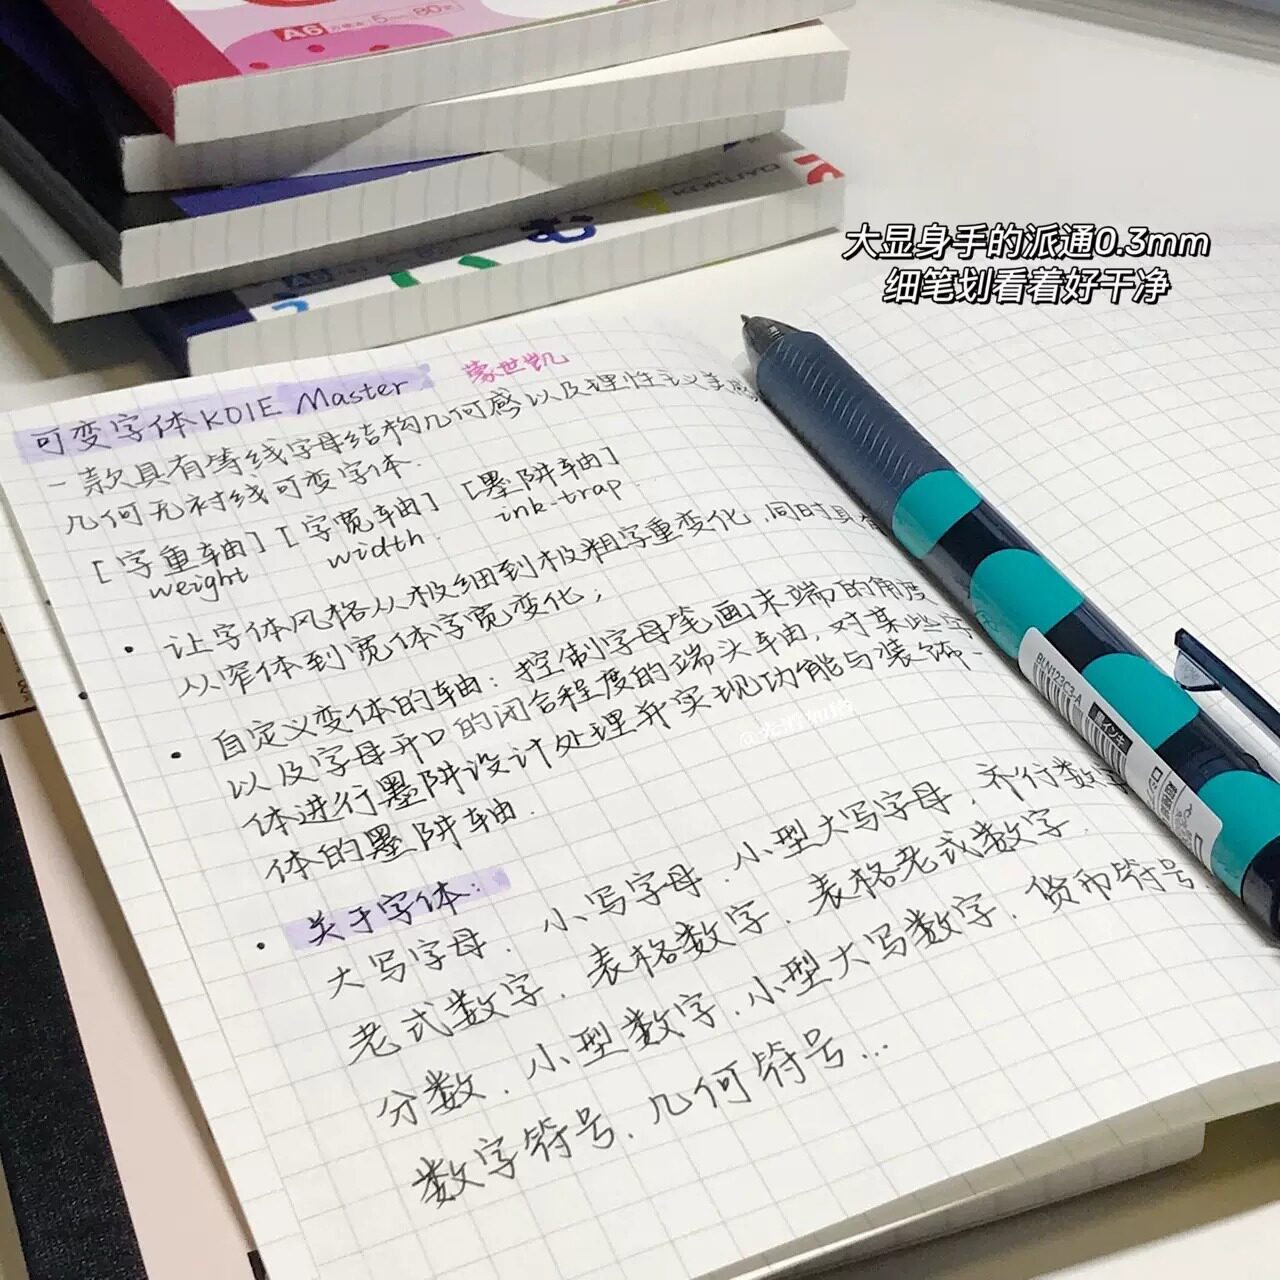 A6 5mm 80
KOKUYO
む
大显身手的派通0.3mm
细笔划看着好干净
可变字体KOIE Master 蒙世凯
一款具有等线字母结构几何感以及理性主义美感
几何无衬线可变字体.
[字重轴] [字宽轴] [墨阱轴]
weight width. ink-trap.
· 让字体风格从极细到极粗字重变化,同时具有
从窄体到宽体字宽变化;
· 自定义变体的轴:控制字母笔画末端的角度
以及字母开口的闭合程度的端头轴,对某些字
体进行墨阱设计处理并实现功能与装饰一
体的墨阱轴.
· 关于字体:
大写字母、小写字母、小型大写字母、齐行数字
老式数字、表格数字、表格老式数字.
分数、小型数字、小型大写数字、货币符号、
数字符号、几何符号...
BLN123C3-A
黒インキ